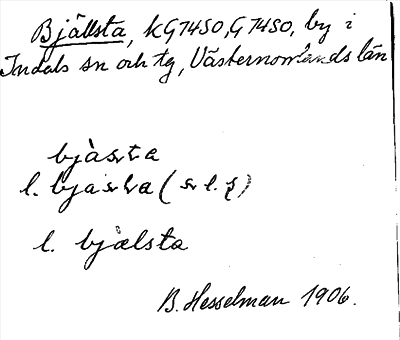 Bjällsta, KG7450, G7450, by i
Indals sn och tg, Västernorrlands län
bjàsta
l. bjasta (s l. ş)
l. bjälsta
B. Hesselman 1906.